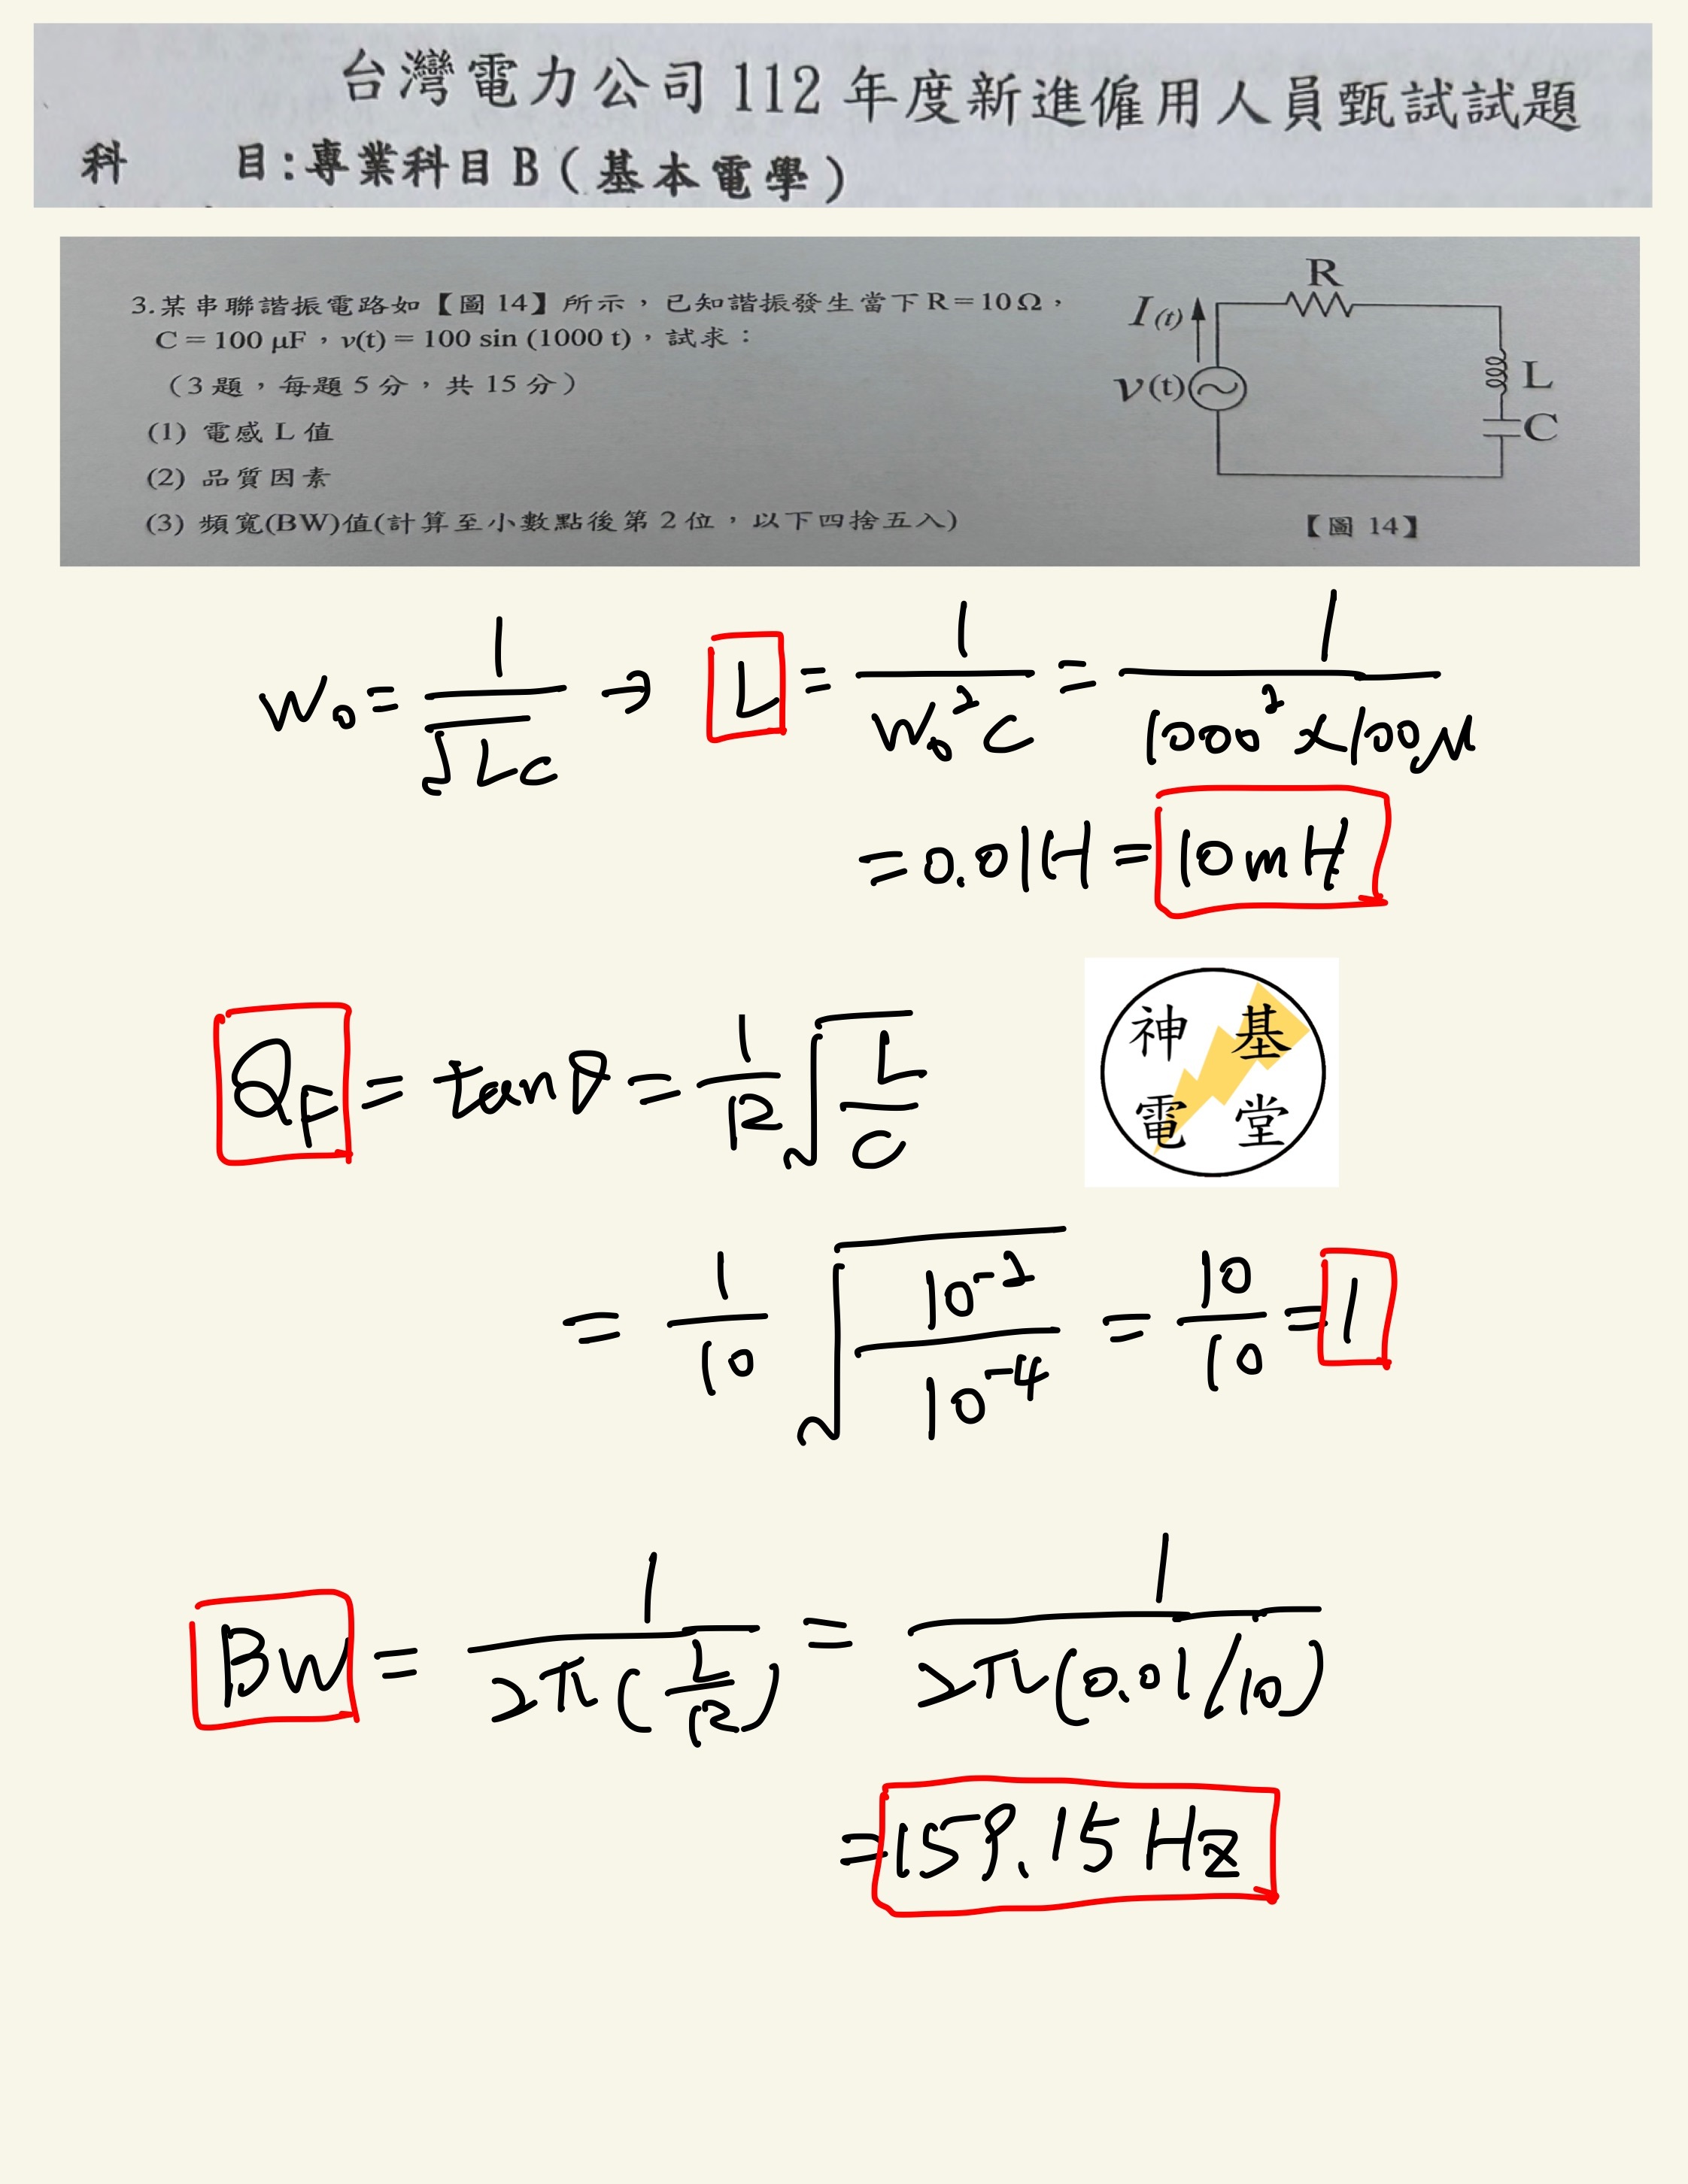 台灣電力公司112年度新進僱用人員甄試試題
科 目:專業科目B(基本電學)
3.某串聯諧振電路如【圖 14】所示，已知諧振發生當下R=10Ω，
C = 100 μF，v(t) = 100 sin (1000 t)，試求：
（3題，每題5分，共15分）
(1) 電感 L 值
(2) 品質因素
(3) 頻寬(BW)值(計算至小數點後第2位，以下四捨五入)
R
I(t)
v(t)
L
C
【圖 14】
W₀ = 1/√LC → L = 1/W₀²C = 1/1000²×100μ
= 0.01H = 10mH
神基
電堂
QF = tanθ = 1/R √L/C
= 1/10 √10⁻²/10⁻⁴ = 10/10 = 1
BW = 1/2π(L/R) = 1/2π(0.01/10)
= 159.15 Hz